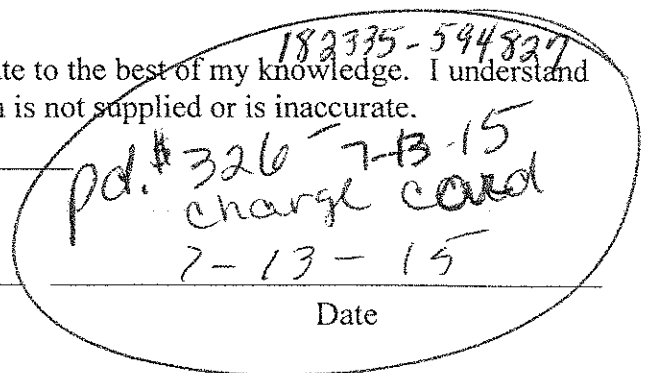 182335-594827
te to the best of my knowledge. I understand
n is not supplied or is inaccurate.
pd. $326- 7-13-15
charge card
7-13-15
Date